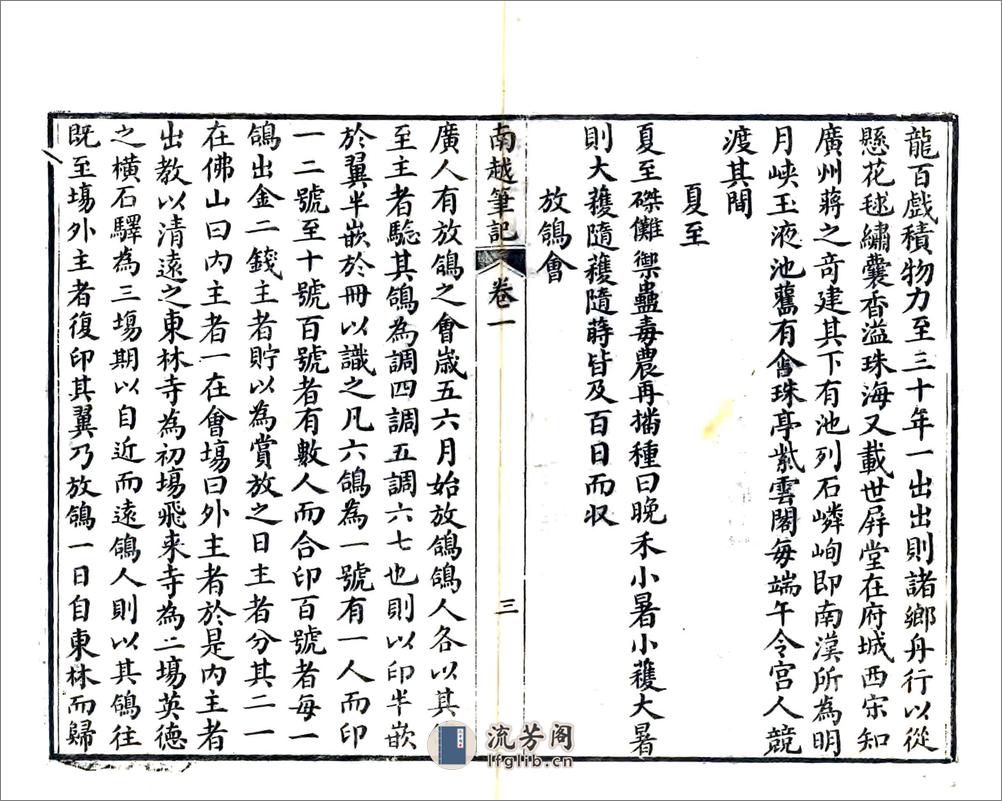 龍百戲積物力至三十年一出出則諸鄉舟行以從
懸花毬繡囊香溢珠海又載世屏堂在府城西宋知
廣州蔣之奇建其下有池列石嶙峋即南漢所為明
月峽玉液池舊有含珠亭紫雲閣每端午令宮人競
渡其間
夏至
夏至磔儺禦蠱毒農再播種曰晚禾小暑小穫大暑
則大穫隨穫隨蒔皆及百日而収
放鴿會
南越筆記 卷一 三
廣人有放鴿之會歲五六月始放鴿鴿人各以其
至主者驗其鴿為調四調五調六七也則以印半嵌
於翼半嵌於冊以識之凡六鴿為一號有一人而印
一二號至十號百號者有數人而合印百號者每一
鴿出金二錢主者貯以為賞放之日主者分其二一
在佛山曰內主者一在會場曰外主者於是內主者
出教以清遠之東林寺為初場飛来寺為二場英德
之橫石驛為三場期以自近而遠鴿人則以其鴿往
既至場外主者復印其翼乃放鴿一日自東林而歸
流芳阁
lfglib.cn